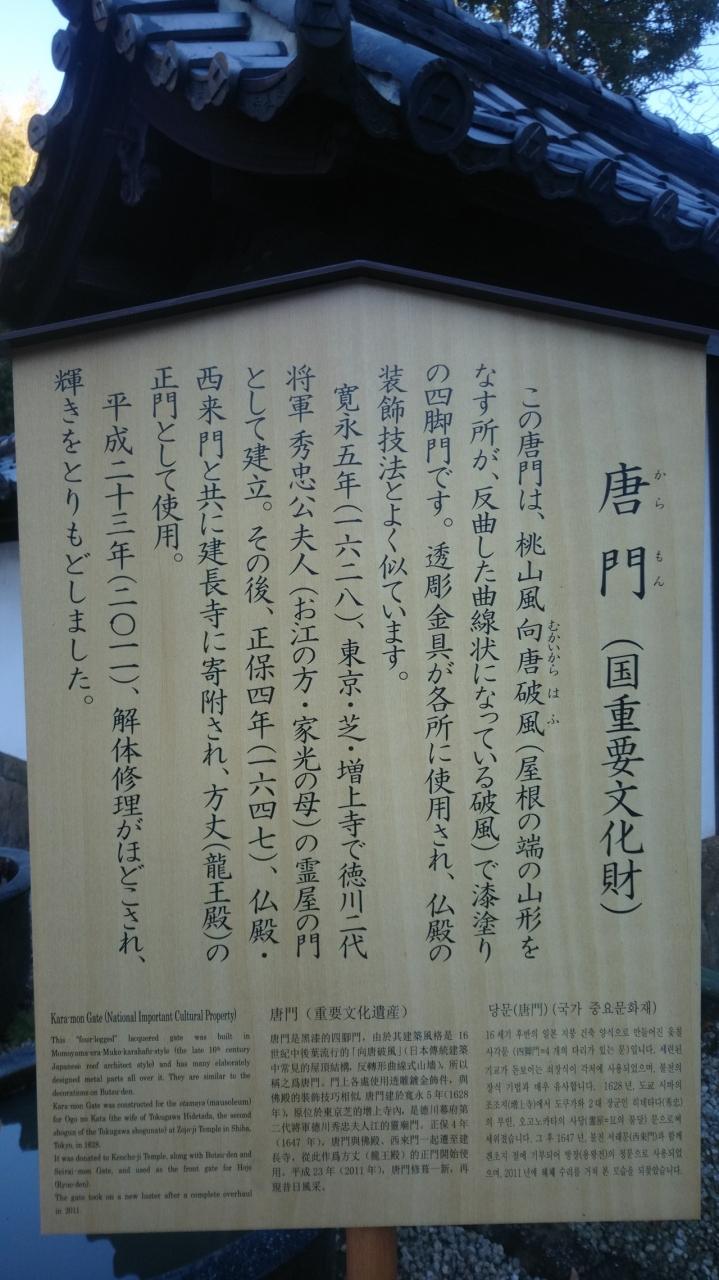 唐門（国重要文化財）
からもん
この唐門は、桃山風向唐破風（屋根の端の山形を
むかいからはふ
なす所が、反曲した曲線状になっている破風）で漆塗り
の四脚門です。透彫金具が各所に使用され、仏殿の
装飾技法とよく似ています。
寛永五年（一六二八）、東京・芝・増上寺で徳川二代
将軍 秀忠公夫人（お江の方・家光の母）の霊屋の門
として建立。その後、正保四年（一六四七）、仏殿・
西来門と共に建長寺に寄附され、方丈（龍王殿）の
正門として使用。
平成二十三年（二〇一一）、解体修理がほどこされ、
輝きをとりもどしました。
Kara-mon Gate (National Important Cultural Property)
This "four-legged" lacquered gate was built in
Momoyama-era Muko-karahafu-style (the late 16th century
Japanese roof architect style) and has many elaborately
designed metal parts all over it. They are similar to the
decorations on Butsu-den.
Kara-mon Gate was constructed for the otamaya (mausoleum)
for Ogo no Kata (the wife of Tokugawa Hidetada, the second
shogun of the Tokugawa shogunate) at Zojo-ji Temple in Shiba,
Tokyo, in 1628.
It was donated to Kencho-ji Temple, along with Butsu-den and
Seirai-mon Gate, and used as the front gate for Hojo
(Ryuo-den).
The gate took on a new luster after a complete overhaul
in 2011.
唐門（重要文化遺産）
唐門是黑漆的四腳門，由於其建築風格是 16
世紀中後葉流行的「向唐破風」（日本傳統建築
中常見的屋頂結構，反轉形曲線式山墻），所以
稱之爲唐門。門上各處使用透雕鍍金飾件，與
佛殿的裝飾技巧相似。唐門建於寬永 5 年（1628
年），原位於東京芝的增上寺內，是德川幕府第
二代將軍德川秀忠夫人江的靈廟門。正保 4 年
（1647 年），唐門與佛殿、西來門一起遷至建
長寺，從此作爲方丈（龍王殿）的正門開始使
用。平成 23 年（2011 年），唐門修葺一新，再
現昔日風采。
당문(唐門) (국가 중요문화재)
16 세기 후반의 일본 지붕 건축 양식으로 만들어진 옻칠
사각문 (四脚門=4 개의 다리가 있는 문)입니다. 세련된
기교가 돋보이는 쇠장식이 각처에 사용되었으며, 불전의
장식 기법과 매우 유사합니다. 1628년, 도쿄 시바의
조조지(增上寺)에서 도쿠가와 2대 장군인 히데타다(秀忠)
의 부인, 오고노카타의 사당(靈屋=묘의 풍당) 문으로써
세워졌습니다. 그 후 1647년, 불전 서래문(西來門)과 함께
겐초지 절에 기부되어 방장(용왕전)의 정문으로 사용되었
으며, 2011년에 해체 수리를 거쳐 본 모습을 되찾았습니다.